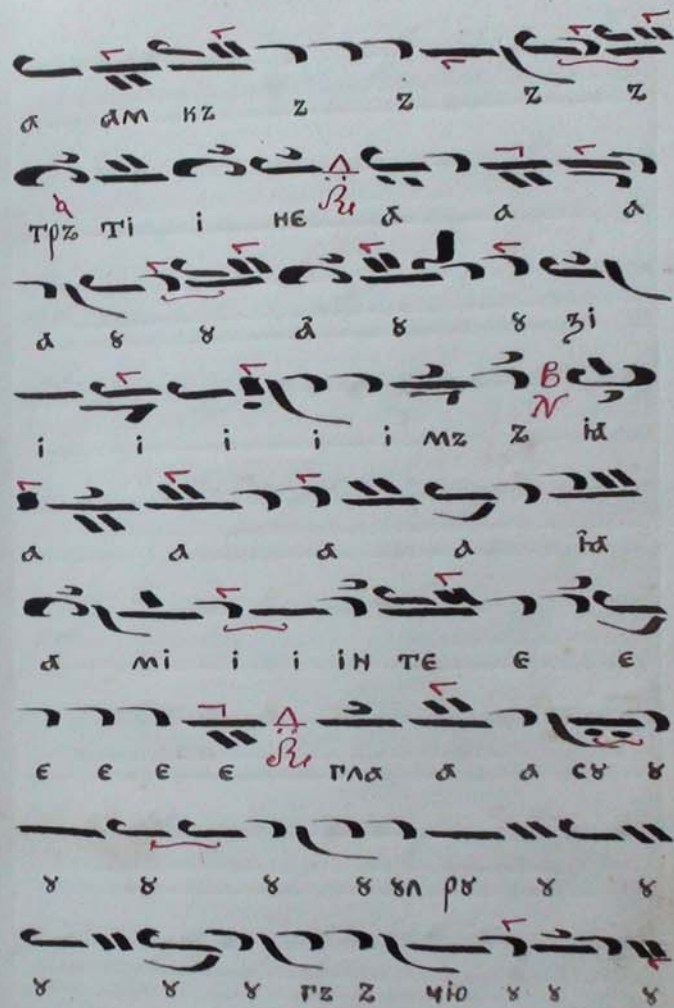 а ам кz z z z z
трz ті і не а а а
а ꙋ ꙋ а̂ ꙋ ꙋ зі
і і і і і мz z ꙗ
а а а а ꙗ̂
а мі і і ін те е е
е е е е гла а а сꙋ ꙋ
ꙋ ꙋ ꙋ ꙋ ꙋл рꙋ ꙋ ꙋ
ꙋ ꙋ ꙋ гz z чю ꙋ ꙋ ꙋ